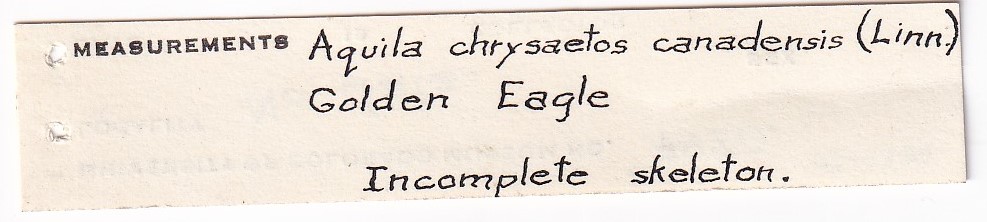 MEASUREMENTS Aquila chrysaetos canadensis (Linn.)
Golden Eagle
Incomplete skeleton.